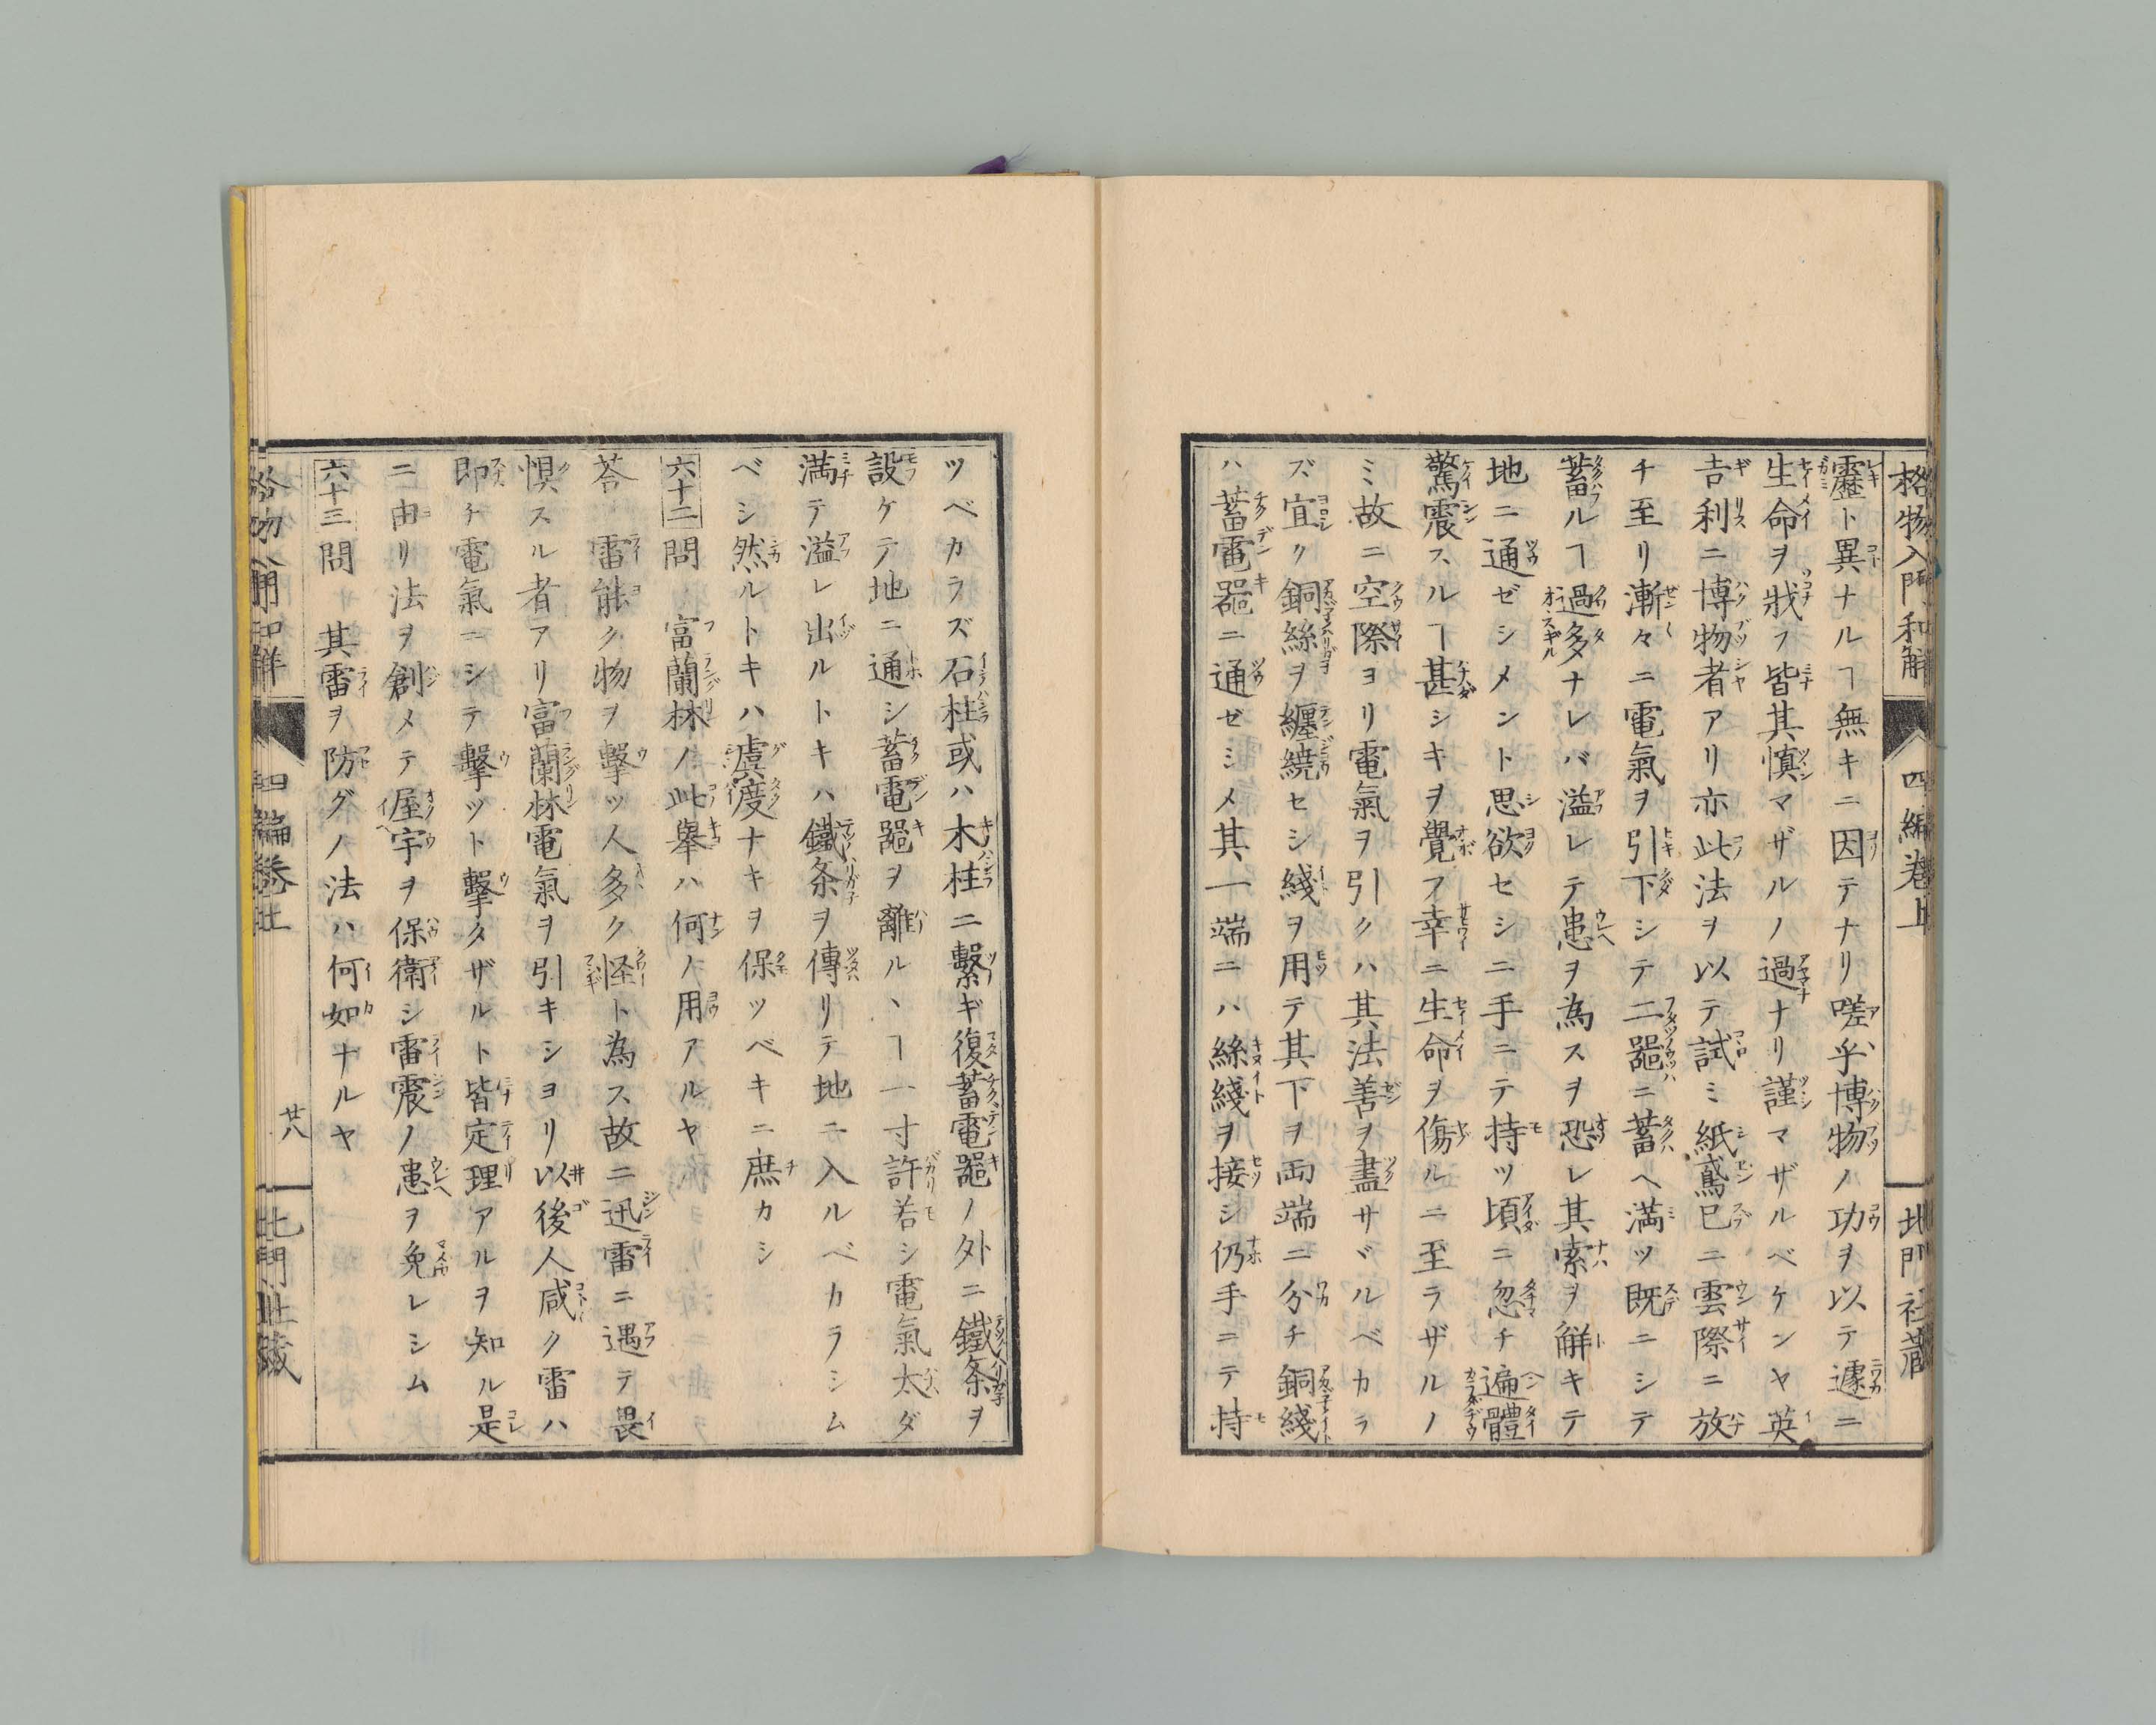 格物入門和解 四編巻上 北門社蔵
靂ト異ナルヿ無キニ因テナリ嗟乎博物ノ功ヲ以テ遽ニ
生命ヲ戕フ皆其慎マザルノ過ナリ謹マザルベケンヤ英
吉利ニ博物者アリ亦此法ヲ以テ試ミ紙鳶已ニ雲際ニ放
チ至リ漸々ニ電氣ヲ引下シテ二噐ニ蓄ヘ満ツ既ニシテ
蓄ルヿ過多ナレバ溢レテ患ヲ為スヲ恐レ其索ヲ解キテ
地ニ通ゼシメント思欲セシニ手ニテ持ツ頃ニ忽チ遍體
驚震スルヿ甚シキヲ覺フ幸ニ生命ヲ傷ルニ至ラザルノ
ミ故ニ空際ヨリ電氣ヲ引クハ其法善ヲ盡サヾルベカラ
ズ宜ク銅絲ヲ纏繞セシ綫ヲ用テ其下ヲ両端ニ分チ銅綫
ハ蓄電噐ニ通ゼシメ其一端ニハ絲綫ヲ接シ仍手ニテ持
ツベカラズ石柱或ハ木柱ニ繫ギ復蓄電噐ノ外ニ鐵条ヲ
設ケテ地ニ通シ蓄電噐ヲ離ルヽヿ一寸許若シ電氣太ダ
満テ溢レ出ルトキハ鐵条ヲ傳リテ地ニ入ルベカラシム
ベシ然ルトキハ虞渡ナキヲ保ツベキニ庶カシ
六十二問 富蘭林ノ此舉ハ何ノ用アルヤ
荅 雷能ク物ヲ撃ツ人多ク怪ト為ス故ニ迅雷ニ遇テ畏
惧スル者アリ富蘭林電氣ヲ引キシヨリ以後人咸ク雷ハ
即チ電氣ニシテ撃ツト撃タザルト皆定理アルヲ知ル是
ニ由リ法ヲ創メテ屋宇ヲ保衛シ雷震ノ患ヲ免レシム
六十三問 其雷ヲ防グノ法ハ何如ナルヤ
格物入門和解 四編巻上 廿八 北門社蔵